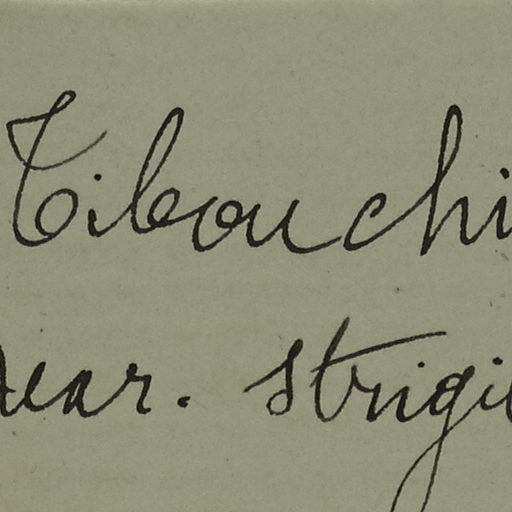 Tibouchi
var. strigil